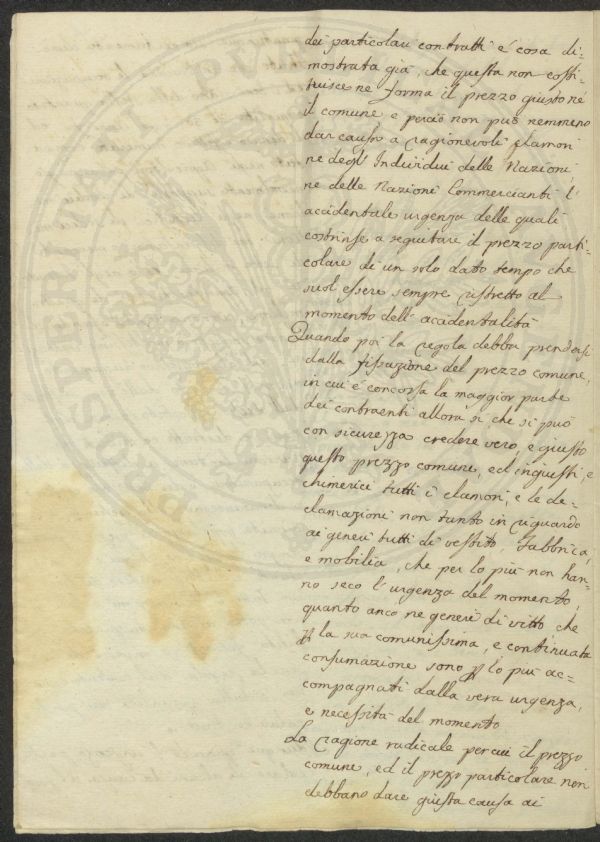 dei particolari contratti é cosa di=
mostrata già, che questa non costi=
tuisce ne forma il prezzo giusto né
il comune e perciò non può nemmeno
dar causa a ragionevoli clamori
ne degl' Individui delle Nazioni,
ne delle Nazioni Commercianti l'
accidentale urgenza delle quali
costrinse a seguitare il prezzo parti=
colare di un solo dato tempo che
suol essere sempre ristretto al
momento dell' accidentalità
Quando poi la regola debba prendersi
dalla fissazione del prezzo comune,
in cui é concorsa la maggior parte
dei contraenti allora si, che si può
con sicurezza credere vero, e giusto
questo prezzo comune, ed ingiusti, e
chimerici tutti i clamori, e le de=
clamazioni non tanto in riguardo
ai generi tutti di vestito, fabbrica,
e mobilia, che per lo più non han=
no seco l'urgenza del momento,
quanto anco ne generi di vitto che
p la sua comunissima, e continuata
consumazione sono p lo più ac=
compagnati dalla vera urgenza,
e necessità del momento
La ragione radicale per cui il prezzo
comune, ed il prezzo particolare non
debbano dare giusta causa ai